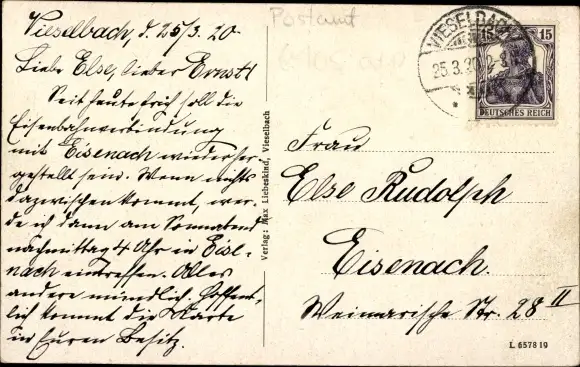 Vieselbach, d. 25/3. 20.
Liebe Else, lieber Ernst!
Seit heute früh soll die
Eisenbahnverbindung
mit Eisenach wiederher
gestellt sein. Wenn nichts
dazwischen kommt, wer-
de ich dann am Sonnabend
nachmittag 4 Uhr in Eise-
nach eintreffen. Alles
andere mündlich. Hoffent-
lich kommt die Karte
in Euren Besitz.
Postamt
Verlag: Max Liebeskind, Vieselbach
VIESELBACH
25.3.20
15 15
DEUTSCHES REICH
Frau
Else Rudolph
Eisenach.
Weimarische Str. 28 II
L 6578 19